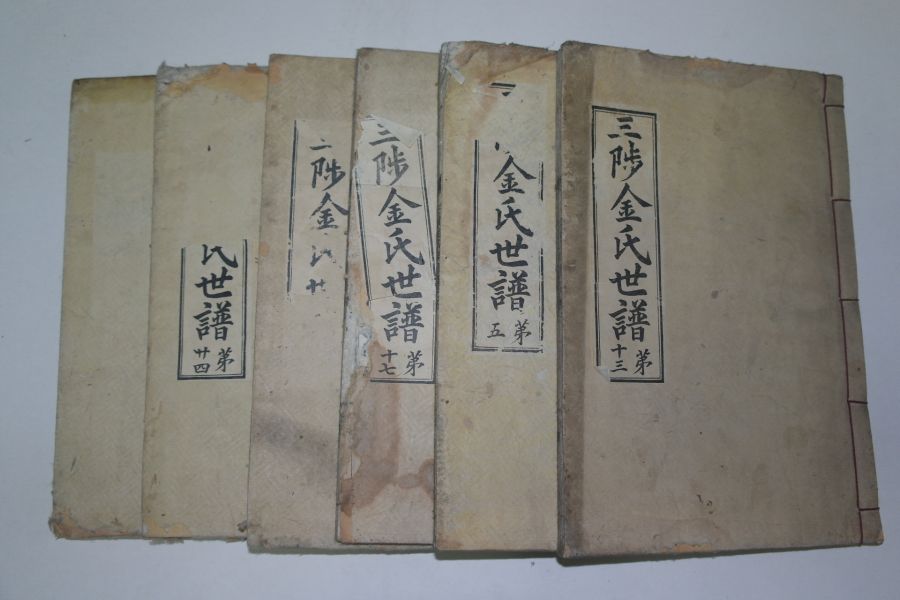 三陟金氏世譜
苐
十三
金氏世譜
苐
五
三陟金氏世譜
苐
十七
陟金
氏世譜
苐
廿四